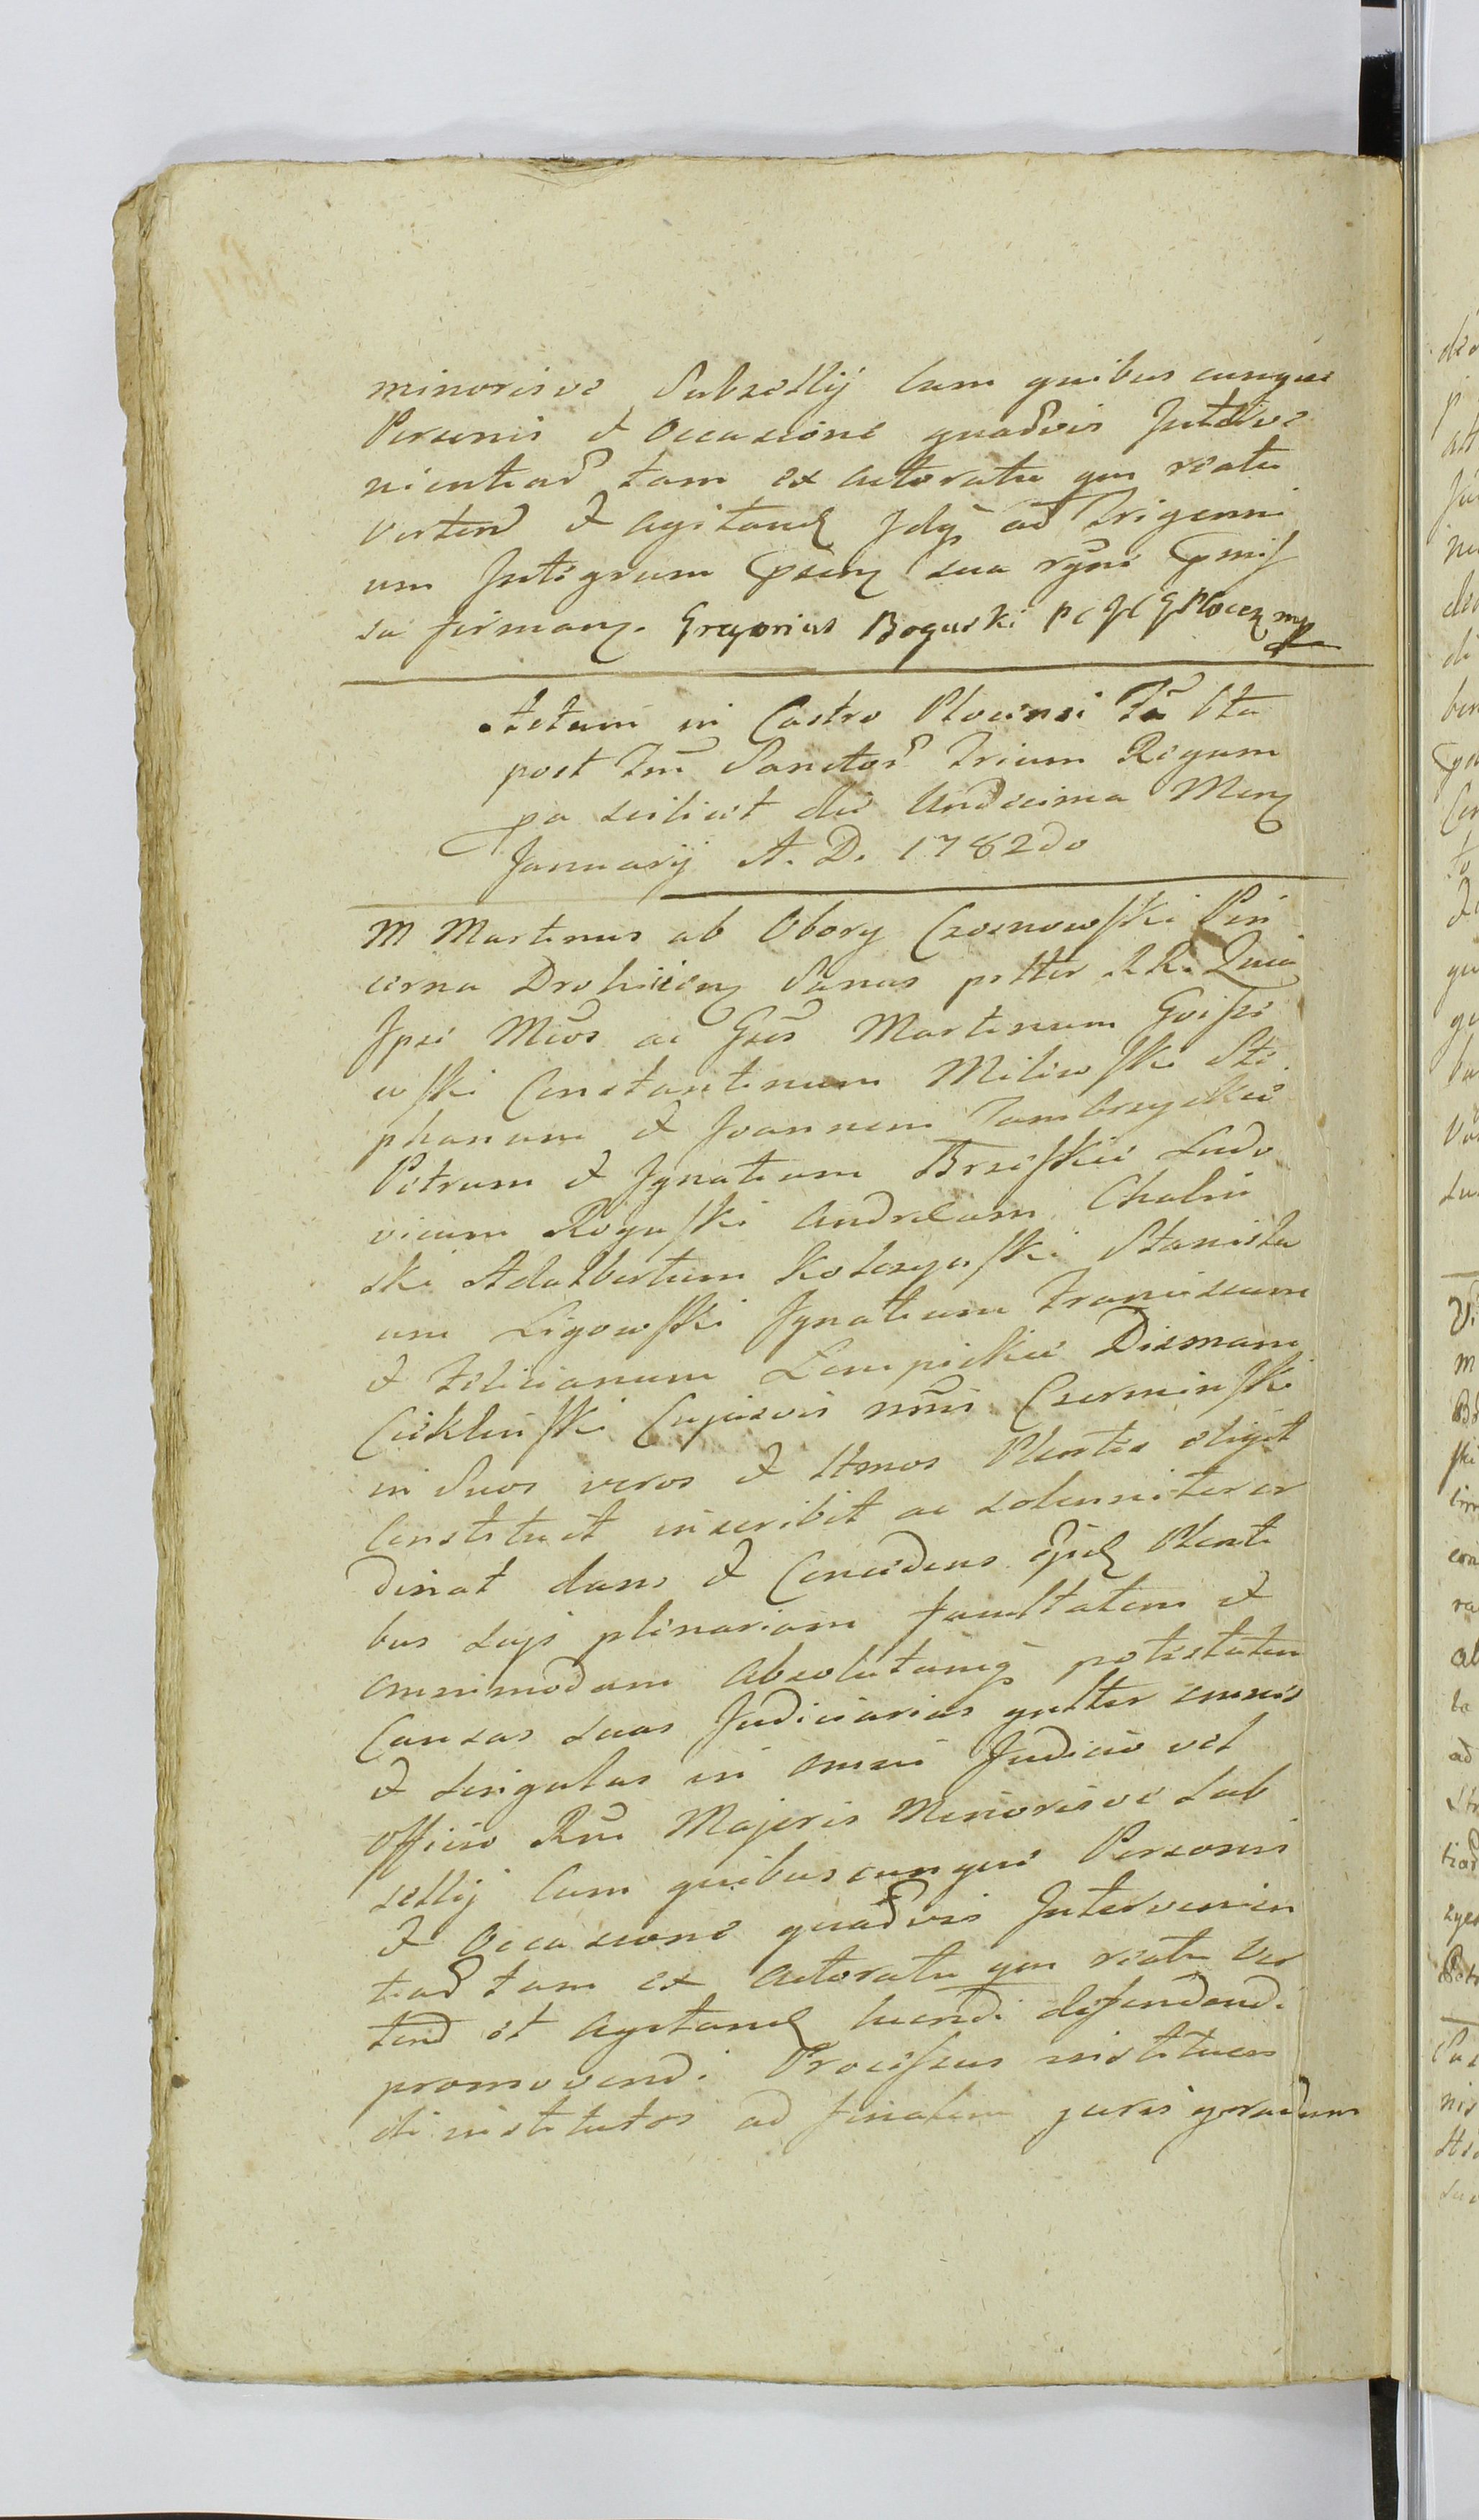 minorisve Subsellij Cum quibus cunque
Personis et Occasione quadvis Interve
nientiad tam ex actoratu qm reatu
verten et agitand Idq ad Trigenni
um Integrum psenz sua rgni pmis
sa firmanz. Gregorius Boguski Plocen mp
Actum in Castro Plocensi Fa 6ta
post Fm Sanctor Trium Regum
pa scilicet die Undecima Menz
Januarij A. D. 1782do
M Martinus ab Obory Czosnowski Pin
cerna Drohicienz Sanus pttter R R. Quia
Ipse Mcos ac Gsos Martinum Goisze
wski Constantinum Milewski Ste
phanum et Joannem Zambrzyckie
Petrum et Ignatium Brzeskie Ludo
vicum Roguski Andream Chelmi
ski Adalbertum Kolczynski Stanisla
um Ligowski Ignatium Franciscum
et Felicianum Lempickie Dismam
Cieklinski Cujusvis nnis Czerminski
in Suos veros et lttmos Plentes eligit
Constituit inscribit ac solenniter or
dinat dans et Concedens ejsd Plenti
bus suis plenariam facultatem et
omnimodam absolutamq potestatem
Causas suas Judiciarias gnltter omnes
et singulas in omni Judicio vel
Officio Rni Majoris Minorisve Sub
sellij Cum quibuscunque Personis
et Occasione quadvis Intervenien
tiad tam ex actoratu qm reatu Ver
tend et agitand luendi defendendi
promovendi Processus instituen
di institutos ad finalem juris gradum